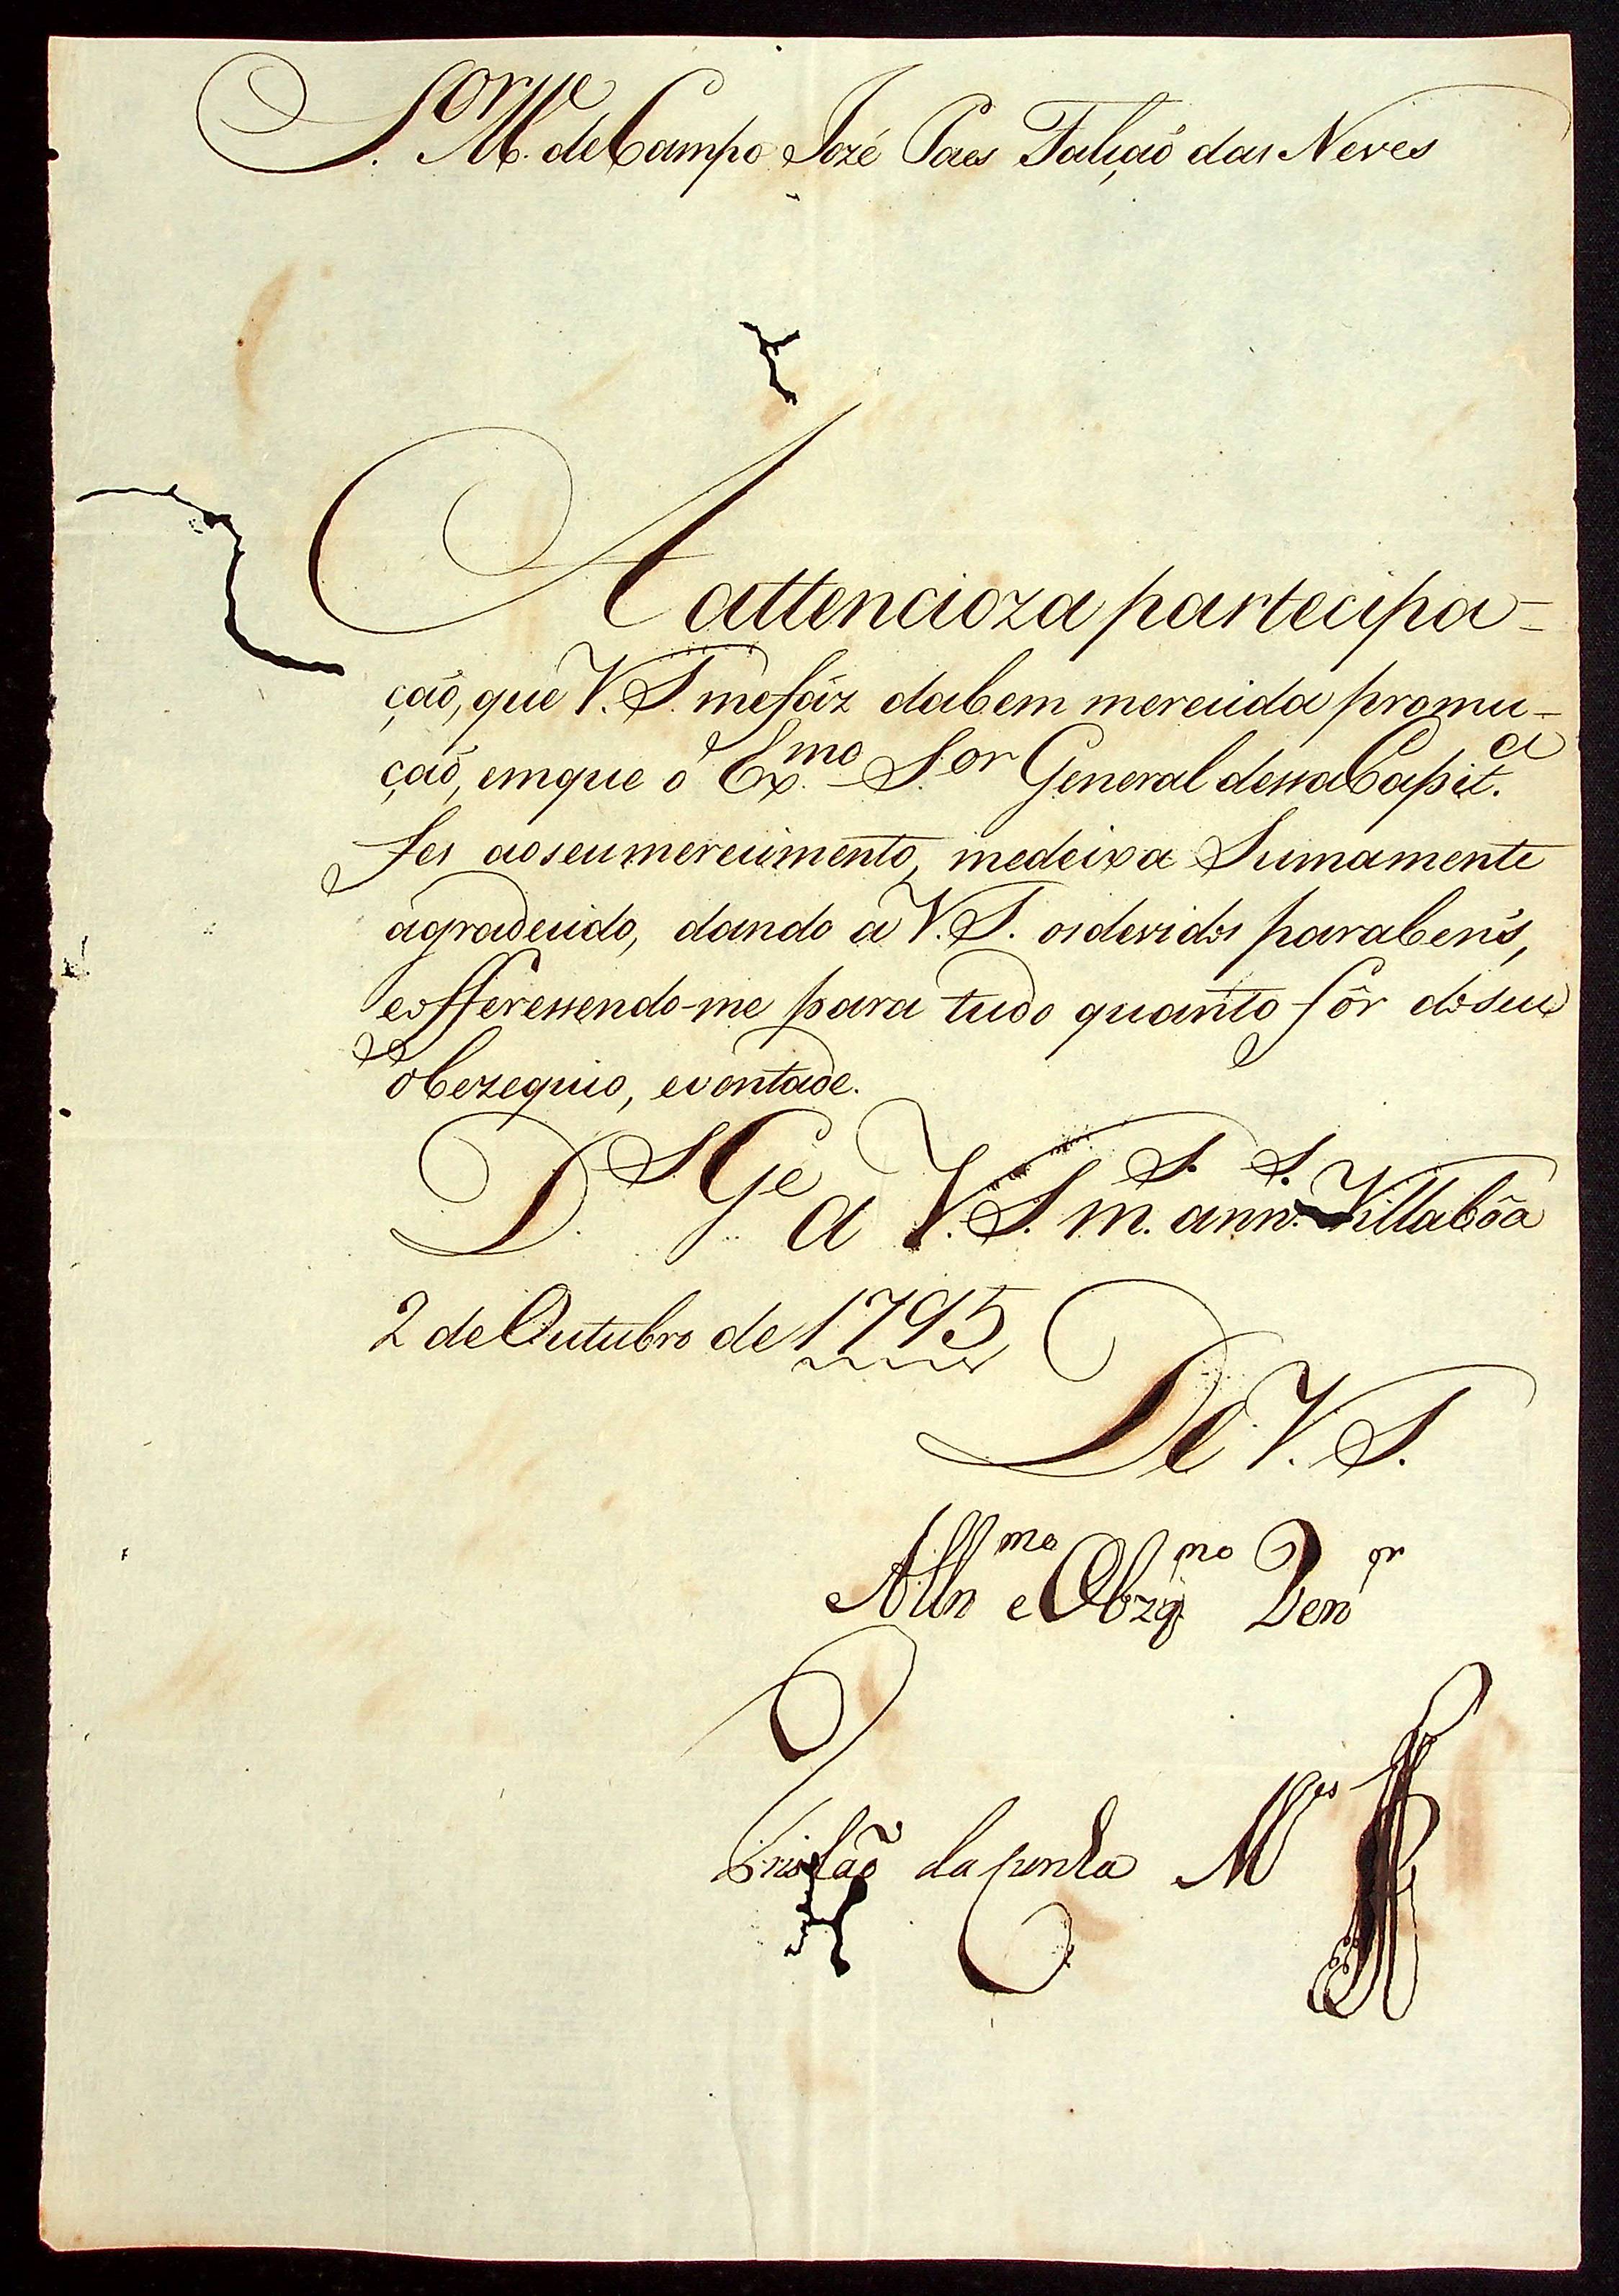 S.or M.e de Campo Jozé Paes Falcaõ das Neves
A attencioza partecipa-
çaõ, que V. S. mefáz dabem merecida promu-
çaõ, emque o Ex.mo S.or General dessa Capit.a
fes aoseumerecimento, medeixa Sumamente
agradecido, dando a V. S. osdevidos parabens,
eofferessendo-me para tudo quanto fôr doseu
obezequio, evontade.
D.s G.e a V. S. m.s ann.s Villabôa
2 deOutubro de 1795
De V. S.
Att.mo e Obzq.mo Ven.or
Tristão da Cunha M.es